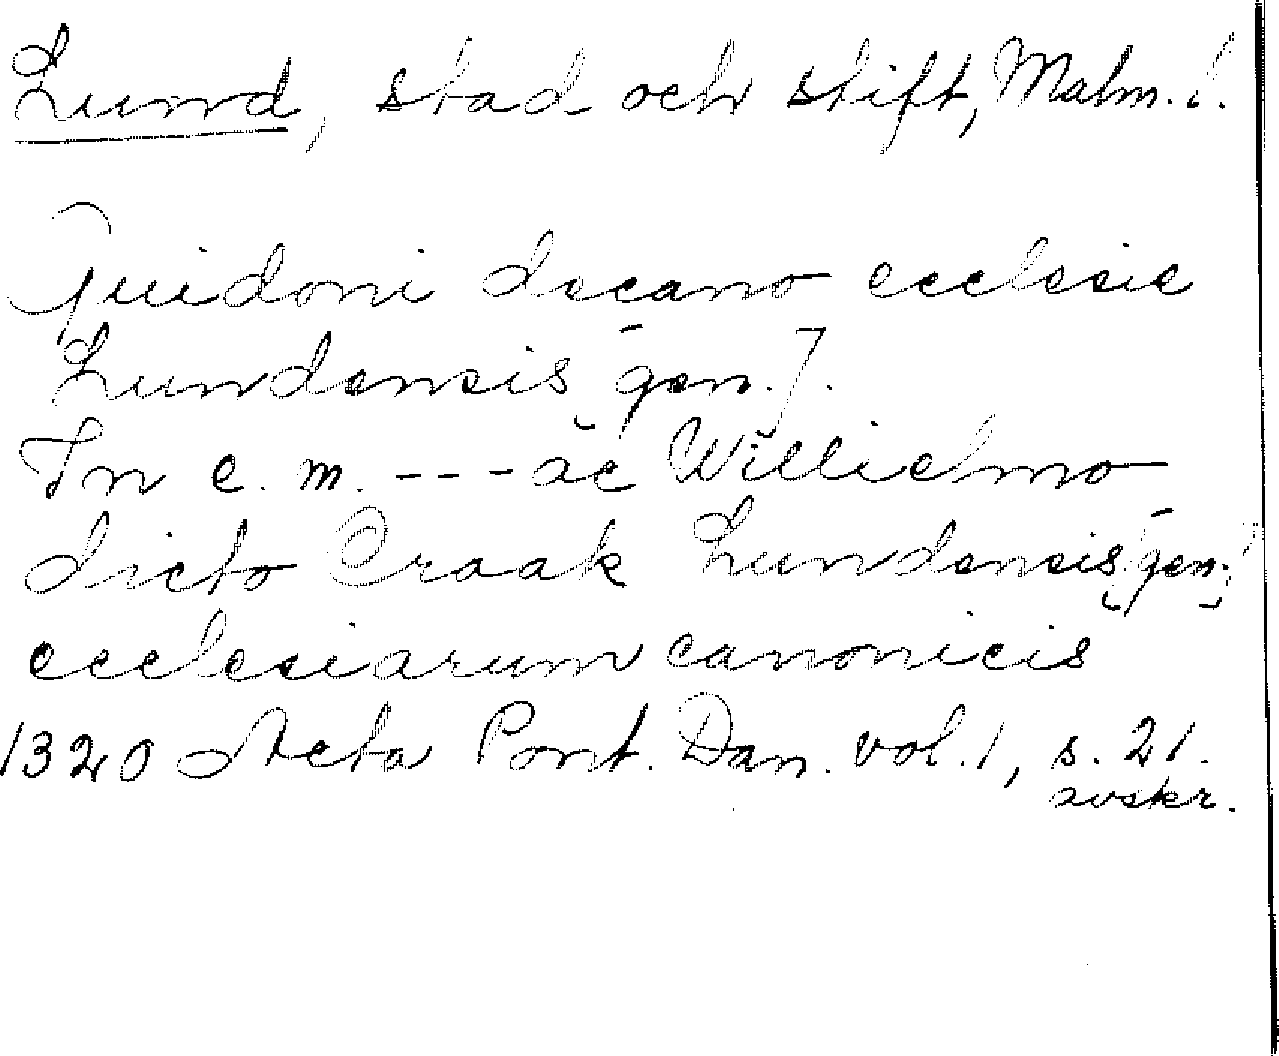 Lund, stad och stift, Malm. l.
Guidoni decano ecclesie
Lundensis [gen.].
In e. m. --- ac Willielmo
dicto Craak Lundensis [gen.]
ecclesiarum canonicis
1320 Acta Pont. Dan. vol. 1, s. 21.
avskr.